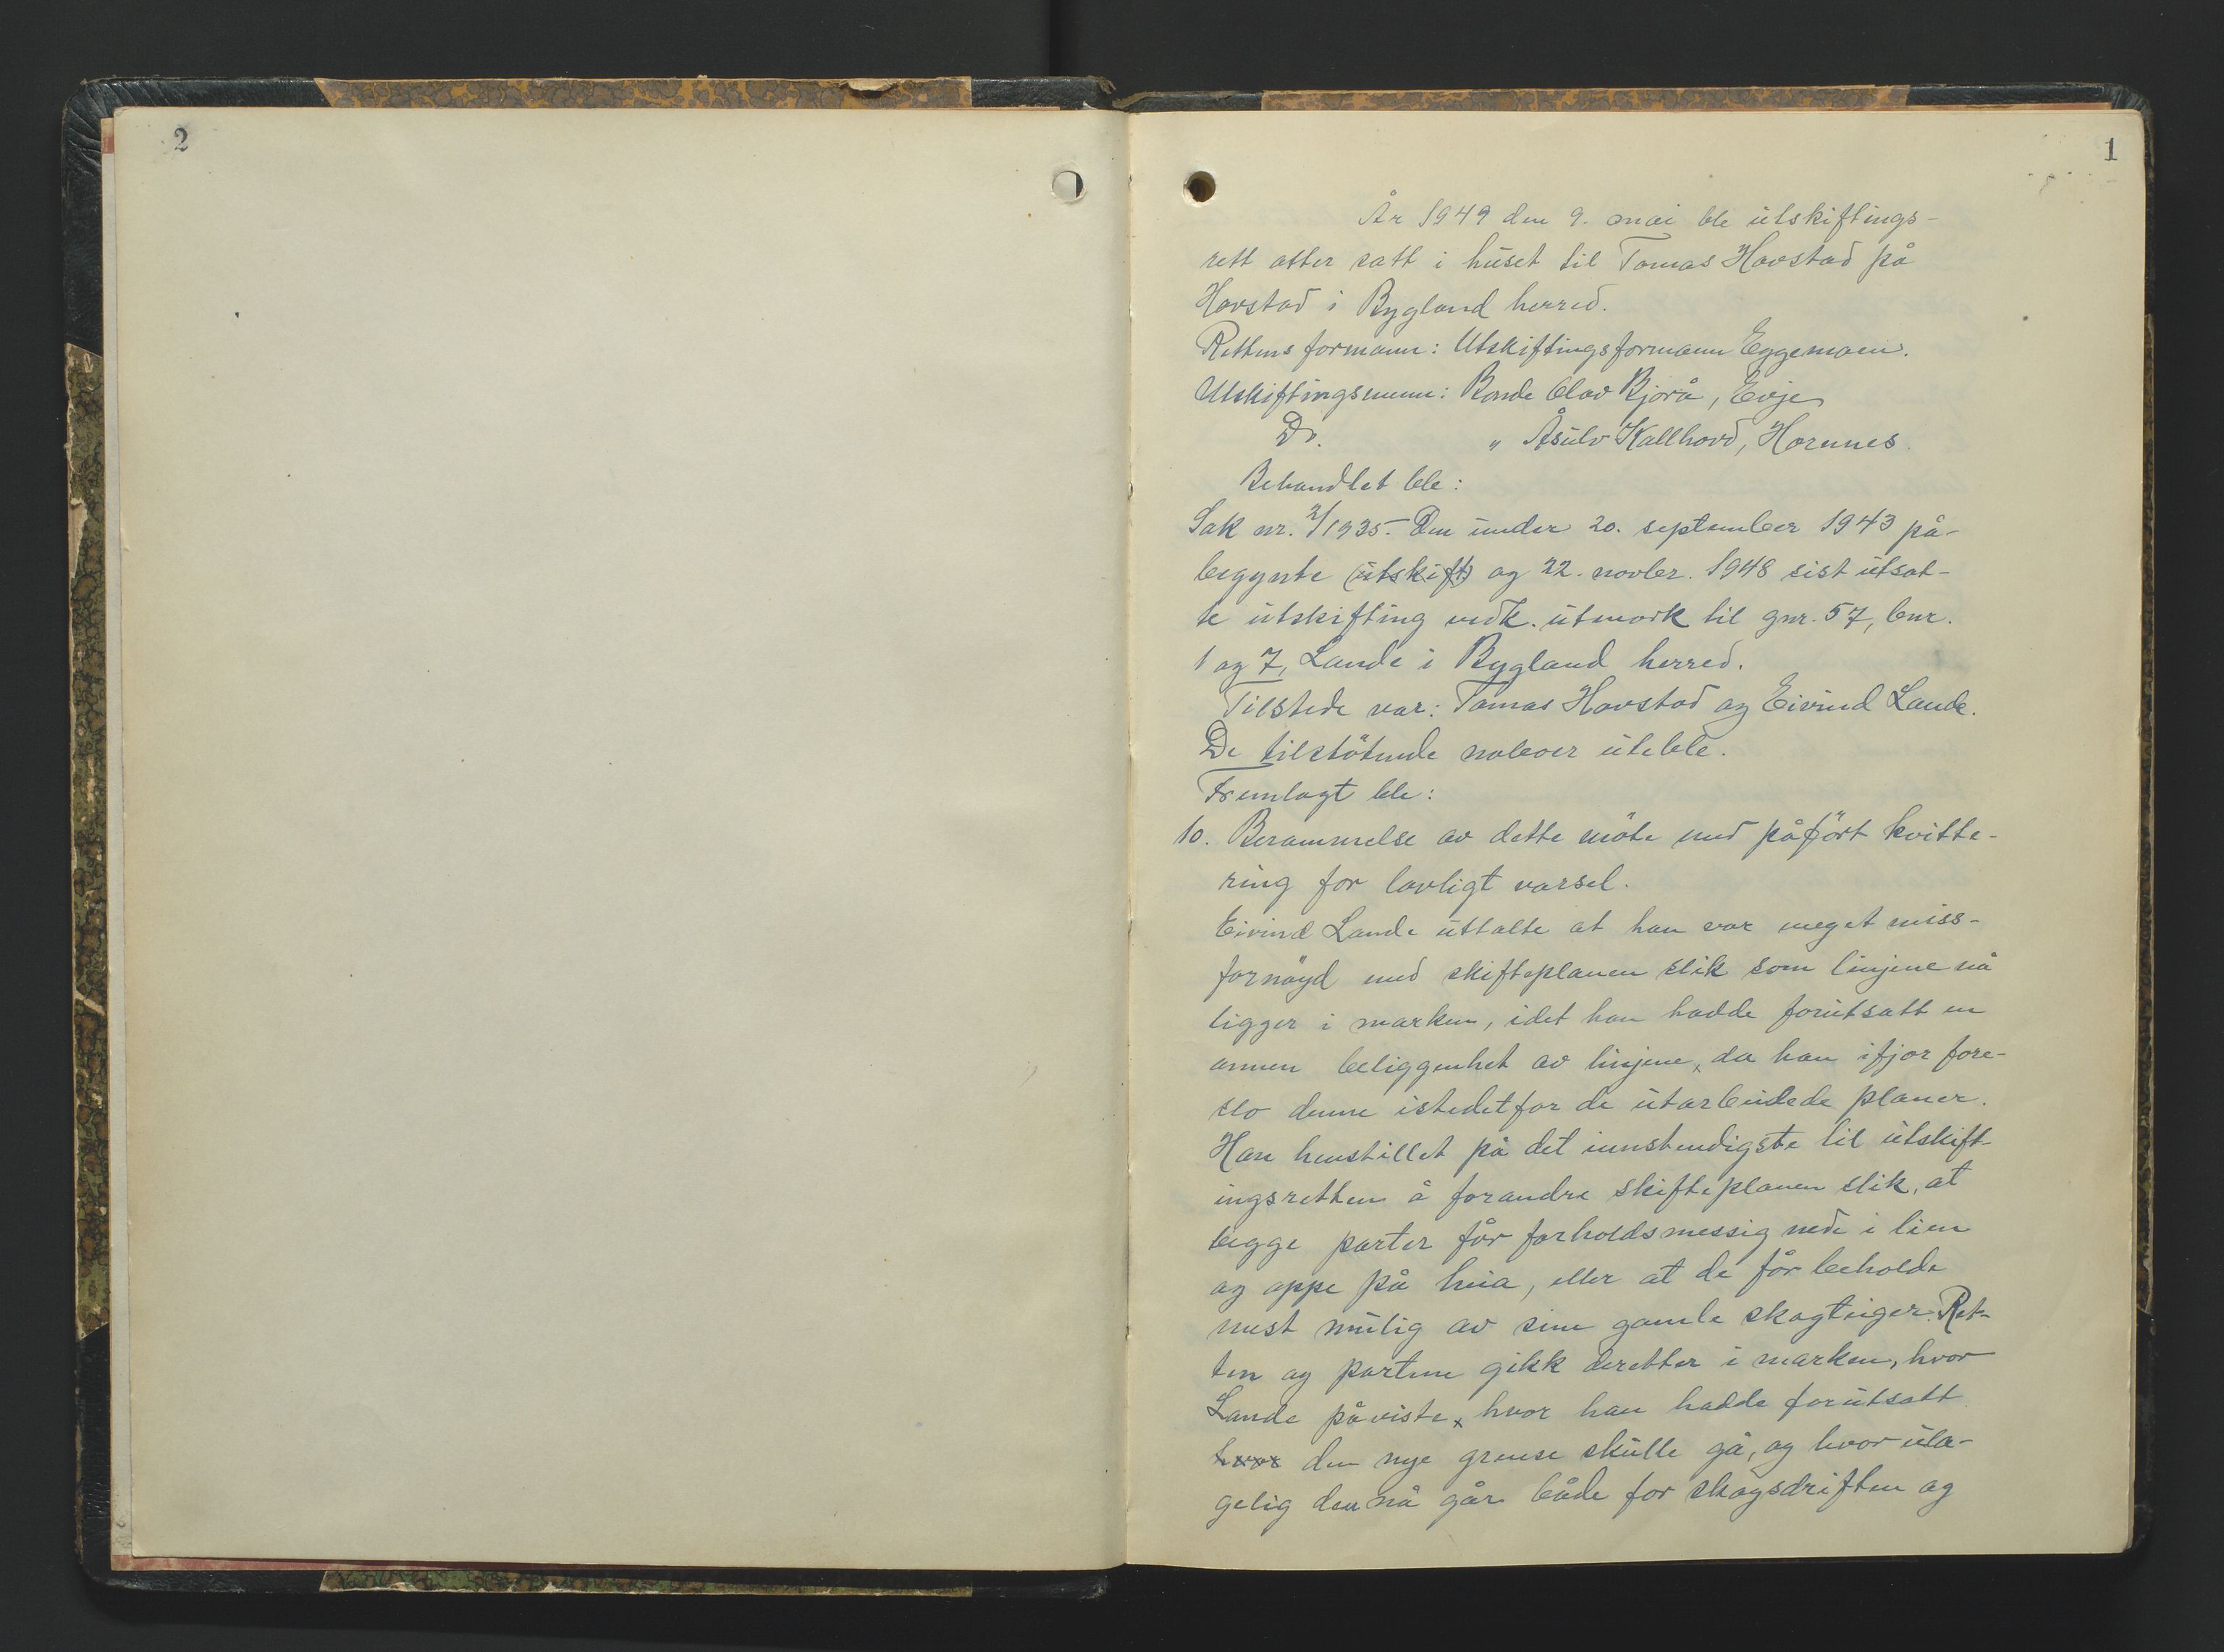 2
1
År 1949 den 9. mai ble utskiftings-
rett atter satt i huset til Tomas Havstad på
Havstad i Bygland herred.
Rettens formann: Utskiftingsformann Eggemoen.
Utskiftingsmenn: Bonde Olav Bjorå, Evje
Do. " Åsulv Kallhovd, Hornnes.
Behandlet ble:
Sak nr. 2/1935. Den under 20. september 1943 på-
begynte (utskift) og 22. novbr. 1948 sist utsat-
te utskifting vedk. utmark til gnr. 57, bnr.
1 og 7, Lande i Bygland herred.
Tilstede var: Tomas Havstad og Eivind Lande.
De tilstötende naboer uteble.
Fremlagt ble:
10. Berammelse av dette möte med påfört kvitte-
ring for lovligt varsel.
Eivind Lande uttalte at han var meget miss-
fornöyd med skifteplanen slik som linjene nå
ligger i marken, idet han hadde forutsatt en
annen beliggenhet av linjene, da han ifjor fore-
slo denne istedetfor de utarbeidede planer.
Han henstillet på det innstendigste til utskift-
ingsretten å forandre skifteplanen slik, at
begge parter får forholdsmessig nede i lien
og oppe på heia, eller at de får beholde
mest mulig av sine gamle skogteiger. Ret-
ten og partene gikk deretter i marken, hvor
Lande påviste, hvor han hadde forutsatt
hvor den nye grense skulle gå, og hvor ula-
gelig den nå går både for skogsdriften og